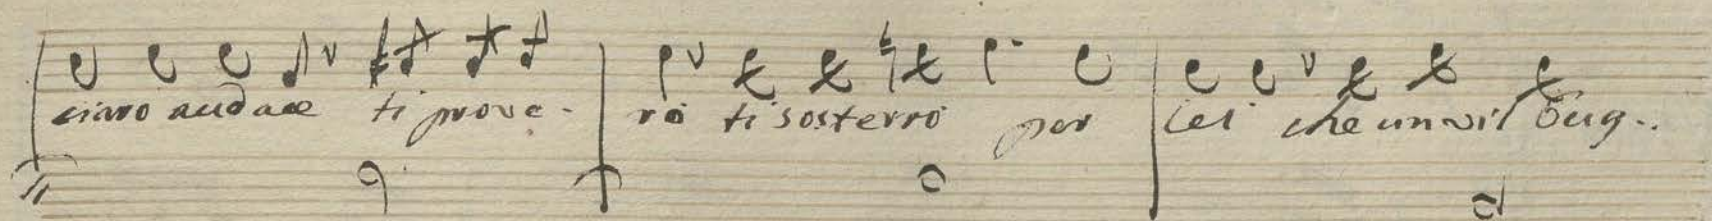 ciaro audace ti prove- rò ti sosterrò per lei che un vil bug..